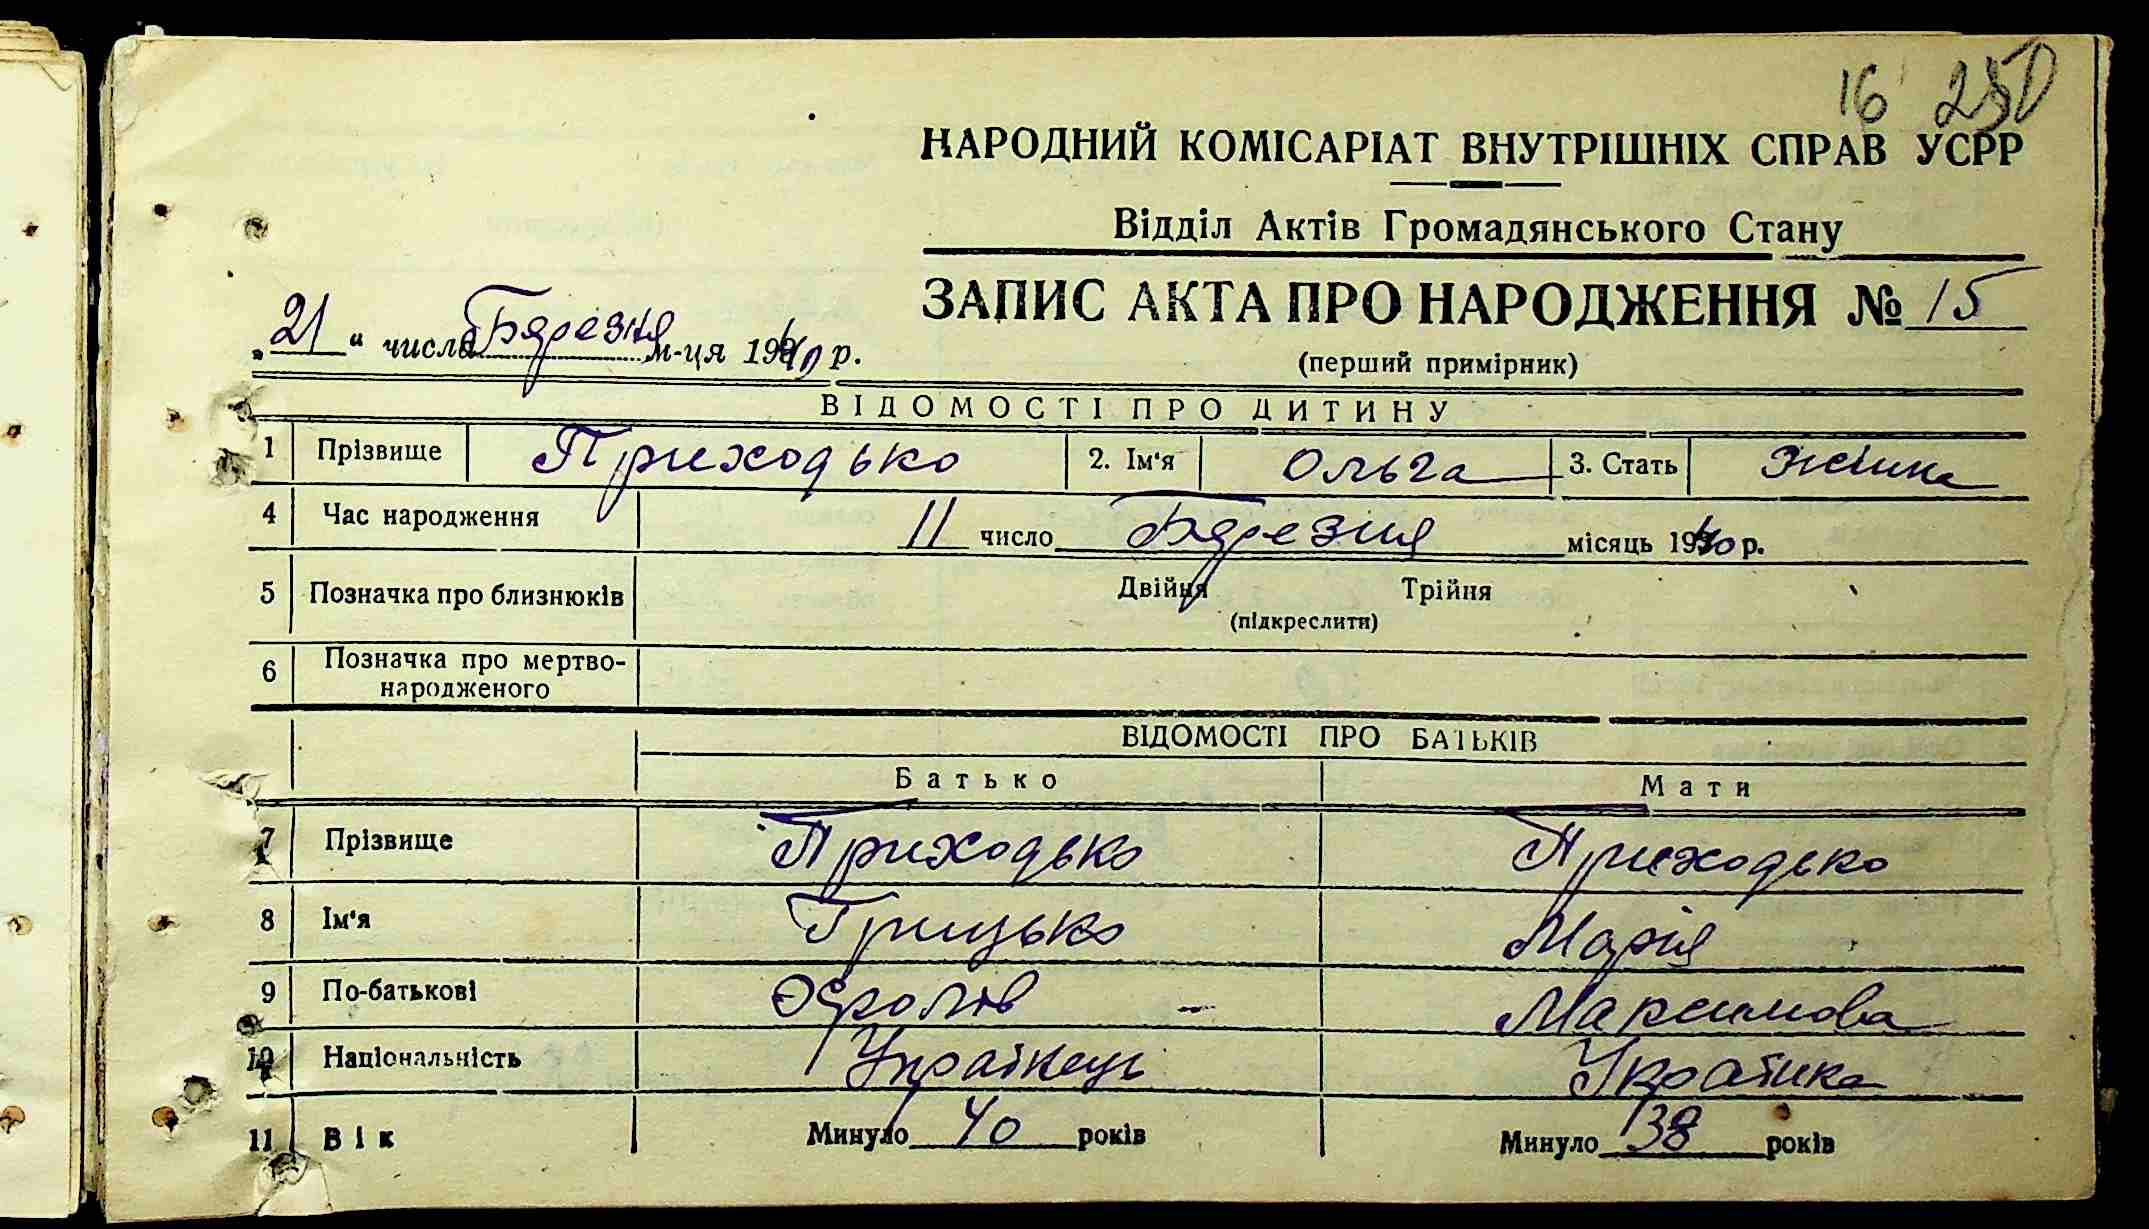 16 250
НАРОДНИЙ КОМІСАРІАТ ВНУТРІШНІХ СПРАВ УСРР
Відділ Актів Громадянського Стану
ЗАПИС АКТА ПРО НАРОДЖЕННЯ № 15
(перший примірник)
„21“ числа Бярезня м-ця 1940 р.
ВІДОМОСТІ ПРО ДИТИНУ
1 Прізвище Приходько 2. Ім'я Ольга 3. Стать Жінка
4 Час народження 11 число Бярезня місяць 1940 р.
5 Позначка про близнюків Двійня Трійня
(підкреслити)
6 Позначка про мертво-
народженого
ВІДОМОСТІ ПРО БАТЬКІВ
Батько Мати
7 Прізвище Приходько Приходько
8 Ім'я Грицько Марія
9 По-батькові Максимова
10 Національність Українець Українка
11 Вік Минуло 40 років Минуло 38 років